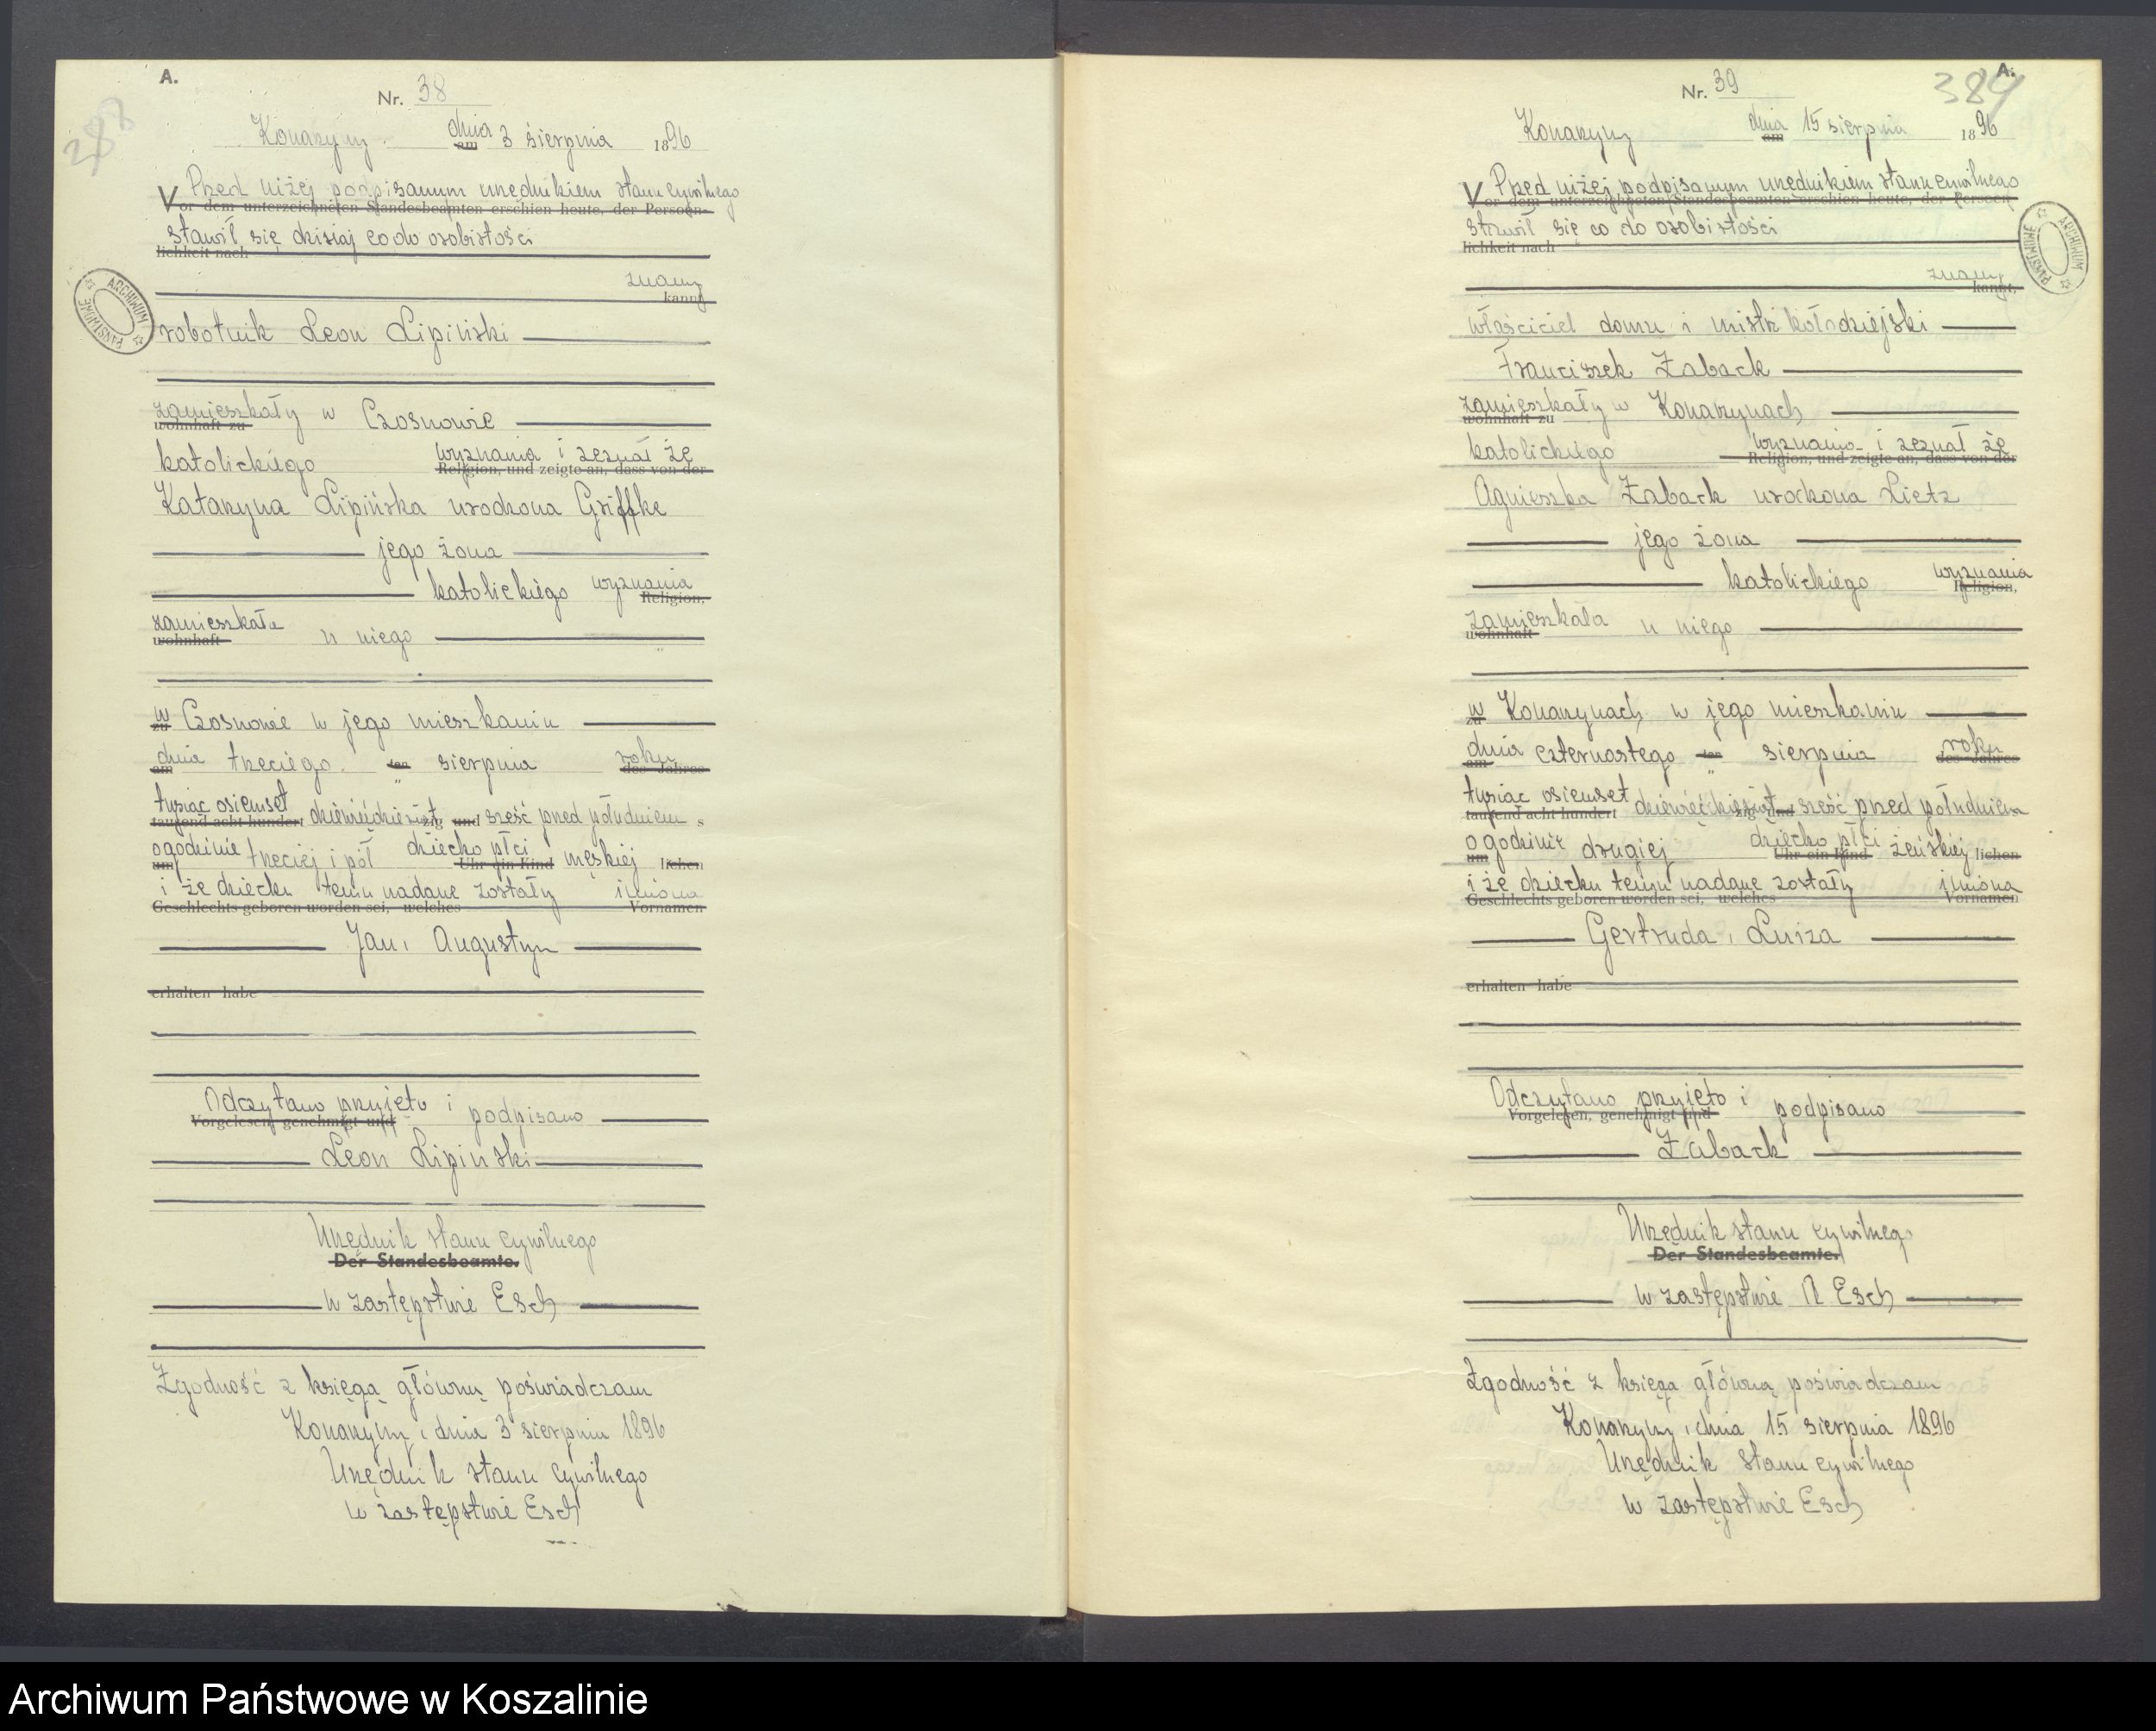 A.
Nr. 38
388
Konarzyny dnia am 3 sierpnia 1896
Przed niżej podpisanym urzędnikiem stanu cywilnego
Vor dem unterzeichneten Standesbeamten erschien heute, der Persoen-
stawił się dzisiaj co do osobistości
lichkeit nach
znany
kannt
robotnik Leon Lipiński
zamieszkały w Czosnowie
wohnhaft zu
katolickiego wyznania i zeznał że
Religion, und zeigte an, dass von der
Katarzyna Lipińska urodzona Griffke
jego żona
katolickiego wyznania
Religion,
zamieszkała u niego
wohnhaft
w Czosnowie w jego mieszkaniu
zu
dnia trzeciego sierpnia roku
am ten des Jahres
tysiąc osiemset dziewięćdziesiąt sześć przed południem
tausend acht hundert zig und s
o godzinie trzeciej i pół dziecko płci męskiej
um Uhr ein Kind lichen
i że dziecku temu nadane zostały imiona
Geschlechts geboren worden sei, welches Vornamen
Jan, Augustyn
erhalten habe
Odczytano przyjęto i podpisano
Vorgelesen, genehmigt und
Leon Lipinski
Urzędnik stanu cywilnego
Der Standesbeamte.
w zastępstwie Esch
Zgodność z księgą główną poświadczam
Konarzyny, dnia 3 sierpnia 1896
Urzędnik stanu cywilnego
w zastępstwie Esch
ARCHIWUM PAŃSTWOWE
A.
Nr. 39
384
Konarzyny dnia am 15 sierpnia 1896
Przed niżej podpisanym urzędnikiem stanu cywilnego
Vor dem unterzeichneten Standesbeamten erschien heute, der Persoen
stawił się co do osobistości
lichkeit nach
znany
kannt,
właściciel domu i mistrz kołodziejski
Franciszek Zaback
zamieszkały w Konarzynach
wohnhaft zu
katolickiego wyznania i zeznał że
Religion, und zeigte an, dass von der
Agnieszka Zaback urodzona Lietz
jego żona
katolickiego wyznania
Religion,
zamieszkała u niego
wohnhaft
w Konarzynach w jego mieszkaniu
zu
dnia czternastego sierpnia roku
am ten des Jahres
tysiąc osiemset dziewięćdziesiąt sześć przed południem
tausend acht hundert zig und
o godzinie drugiej dziecko płci żeńskiej
um Uhr ein Kind lichen
i że dziecku temu nadane zostały imiona
Geschlechts geboren worden sei, welches Vornamen
Gertruda, Luiza
erhalten habe
Odczytano przyjęto i podpisano
Vorgelesen, genehmigt und
Zaback
Urzędnik stanu cywilnego
Der Standesbeamte.
w zastępstwie A Esch
Zgodność z księgą główną poświadczam
Konarzyny, dnia 15 sierpnia 1896
Urzędnik stanu cywilnego
w zastępstwie Esch
ARCHIWUM PAŃSTWOWE
Archiwum Państwowe w Koszalinie